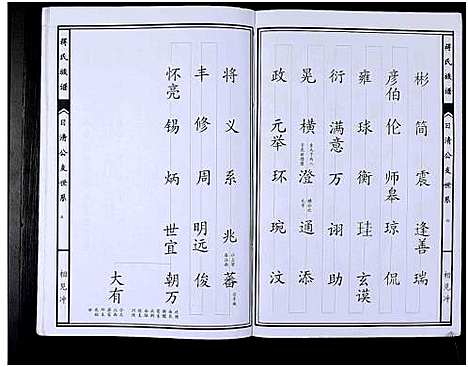 彬 简 震 逢善 瑞
彦伯 伦 师皋 琼 侃
雍 球 衡 珪 玄谟
衍 满意 万 诩 助
晃 横 澄 通 添
政 元举 环 琬 汶
将 义 系 兆 蕃
丰 修 周 明远 俊
怀亮 锡 炳 世宜 朝万
大有
蒋氏族谱
日清公支世系
相见冲